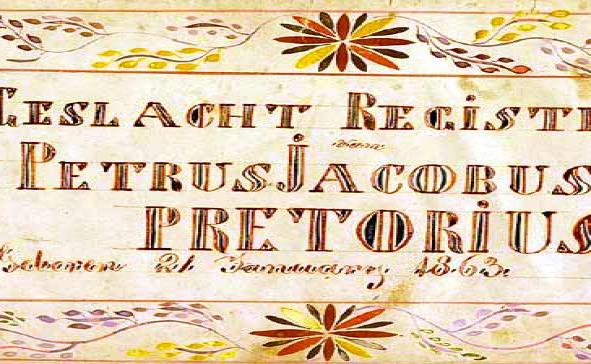 GESLACHT REGISTE
PETRUS JACOBUS
PRETORIUS
Geboren 21 Januwary 1863.